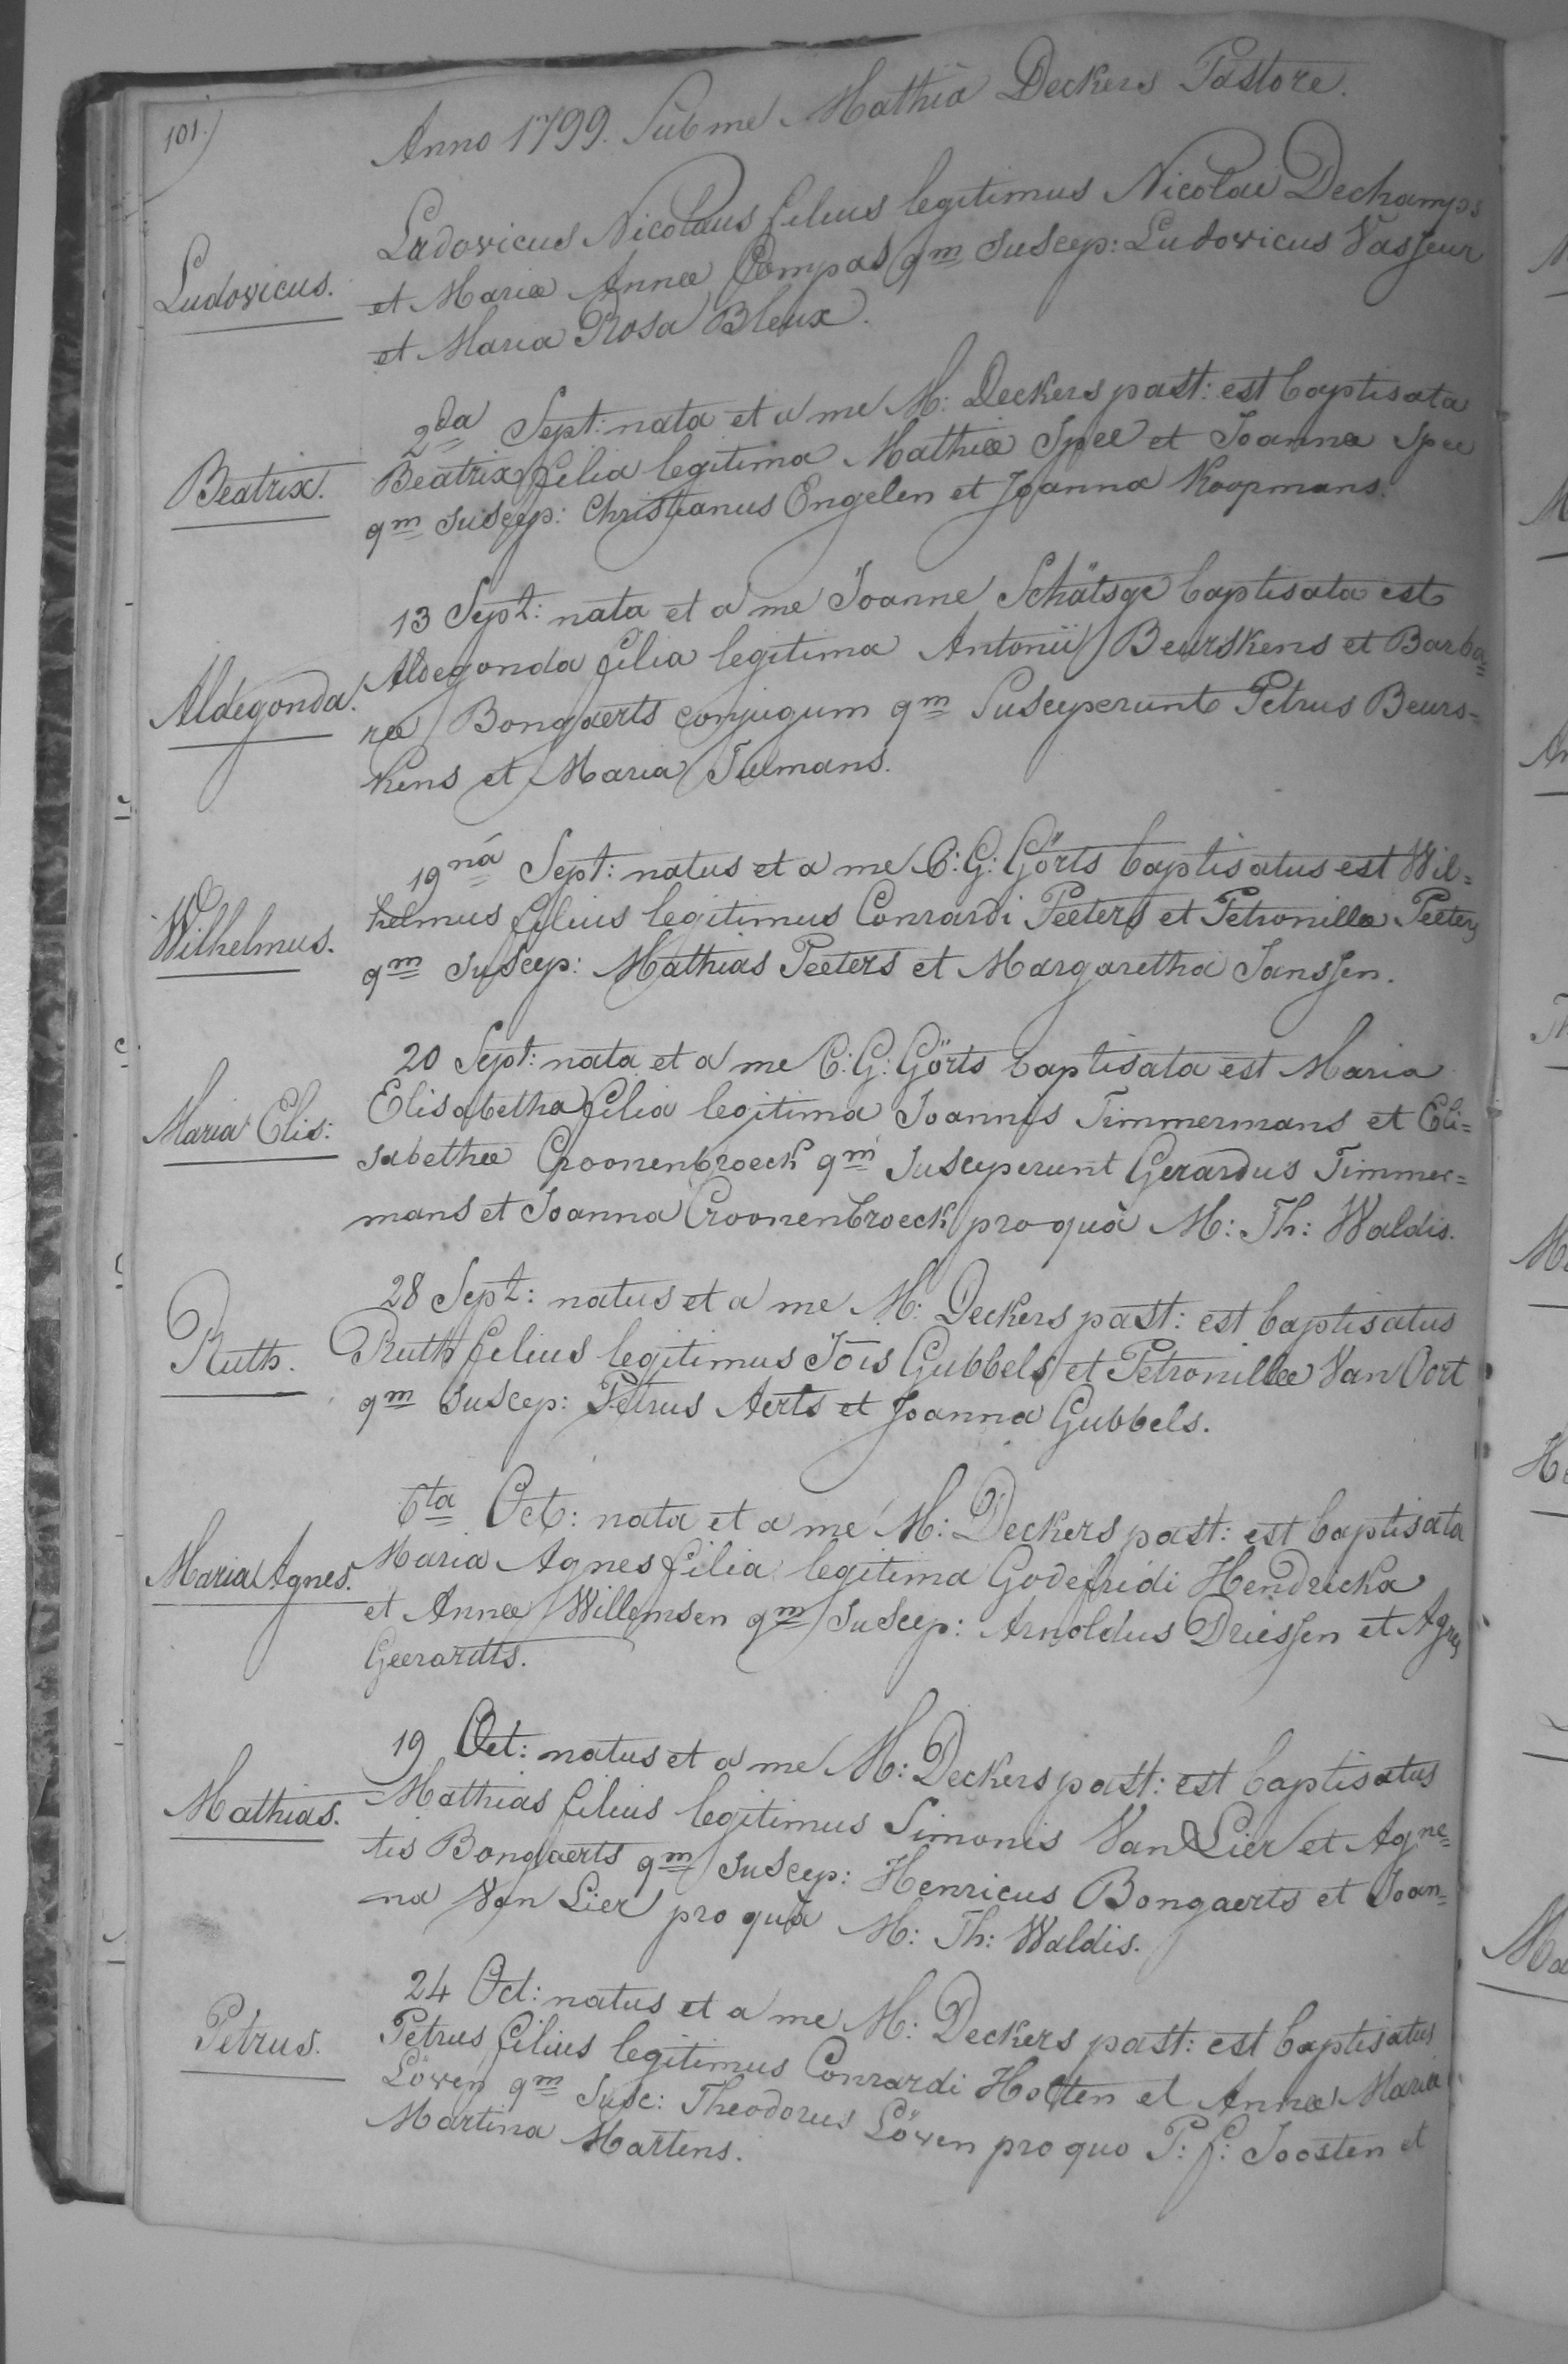 101.)
Anno 1799. Sub me Mathiâ Deckers Pastore.
Ludovicus Nicolaus filius legitimus Nicolai Dechamps
Ludovicus.
et Mariæ Annæ Compas qm suscep: Ludovicus Vasseur
et Maria Rosa Bleux.
2da Sept: nata et a me M: Deckers past: est baptisata
Beatrix.
Beatrix filia legitima Mathiæ Spee et Joannæ Spee
qm suscep: Christianus Engelen et Joanna Koopmans.
13 Sept: nata et a me Joanne Schätsge baptisata est
Aldegonda.
Aldegonda filia legitima Antonii Beurskens et Barba=
ræ Bongaerts conjugum qm susceperunt Petrus Beurs=
kens et Maria Tulmans.
19ná Sept: natus et a me C: G: Görts baptisatus est Wil=
Wilhelmus.
helmus filius legitimus Conrardi Peeters et Petronillæ Peeters
qm suscep: Mathias Peeters et Margaretha Janssen.
20 Sept: nata et a me C: G: Görts baptisata est Maria
Maria Elis:
Elisabetha filia legitima Joannis Timmermans et Eli=
sabethæ Croonenbroeck qm susceperunt Gerardus Timmer=
mans et Joanna Croonenbroeck pro quâ M: Th: Waldis.
28 Sept: natus et a me M: Deckers past: est baptisatus
Ruth.
Ruth filius legitimus Jois Gubbels et Petronillæ Van Oort
qm suscep: Petrus Aerts et Joanna Gubbels.
6ta Oct: nata et a me M: Deckers past: est baptisata
Maria Agnes.
Maria Agnes filia legitima Godefridi Hendrickx
et Annæ Willemsen qm suscep: Arnoldus Driessen et Agnes
Geerardts.
19 Oct: natus et a me M: Deckers past: est baptisatus
Mathias.
Mathias filius legitimus Simonis Van Lier et Agne=
tis Bongaerts qm suscep: Henricus Bongaerts et Joan=
na Van Lier pro quâ M: Th: Waldis.
24 Oct: natus et a me M: Deckers past: est baptisatus
Petrus.
Petrus filius legitimus Conrardi Holten et Annæ Mariæ
Löven qm susc: Theodorus Löven pro quo P: f: Joosten et
Martina Martens.